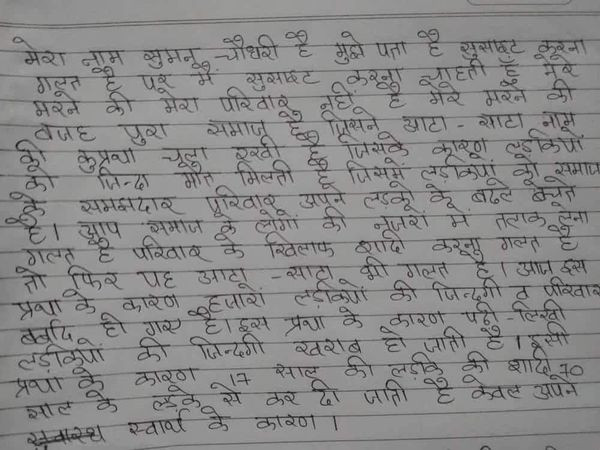 मेरा नाम सुमन चौधरी है मुझे पता है सुसाइट करना
गलत है पर मैं सुसाइट करना चाहती हूँ मेरे
मरने की मेरा परिवार नहीं है मेरे मरने की
वजह पुरा समाज है जिसने आटा-साटा नाम
की कुप्रथा चला रखी है जिसके कारण लड़कीयों
को जिन्दा मौत मिलती है जिसमे लड़कीयों को समाज
के समझदार परिवार अपने लड़को के बदले बेचते
है। आप समाज के लोगों की नजरों में तलाक लेना
गलत है परिवार के खिलाफ शादि करना गलत है
तो फिर यह आटा-साटा भी गलत है। आज इस
प्रथा के कारण हजारों लड़कीयों की जिन्दगी व परिवार
बर्बाद हो गए है। इस प्रथा के कारण पढ़ी-लिखी
लड़कीयों की जिन्दगी खराब हो जाती है। इसी
प्रथा के कारण 17 साल की लड़कि की शादि 70
साल के लड़के से कर दी जाती है केवल अपने
स्वार्थ के कारण।